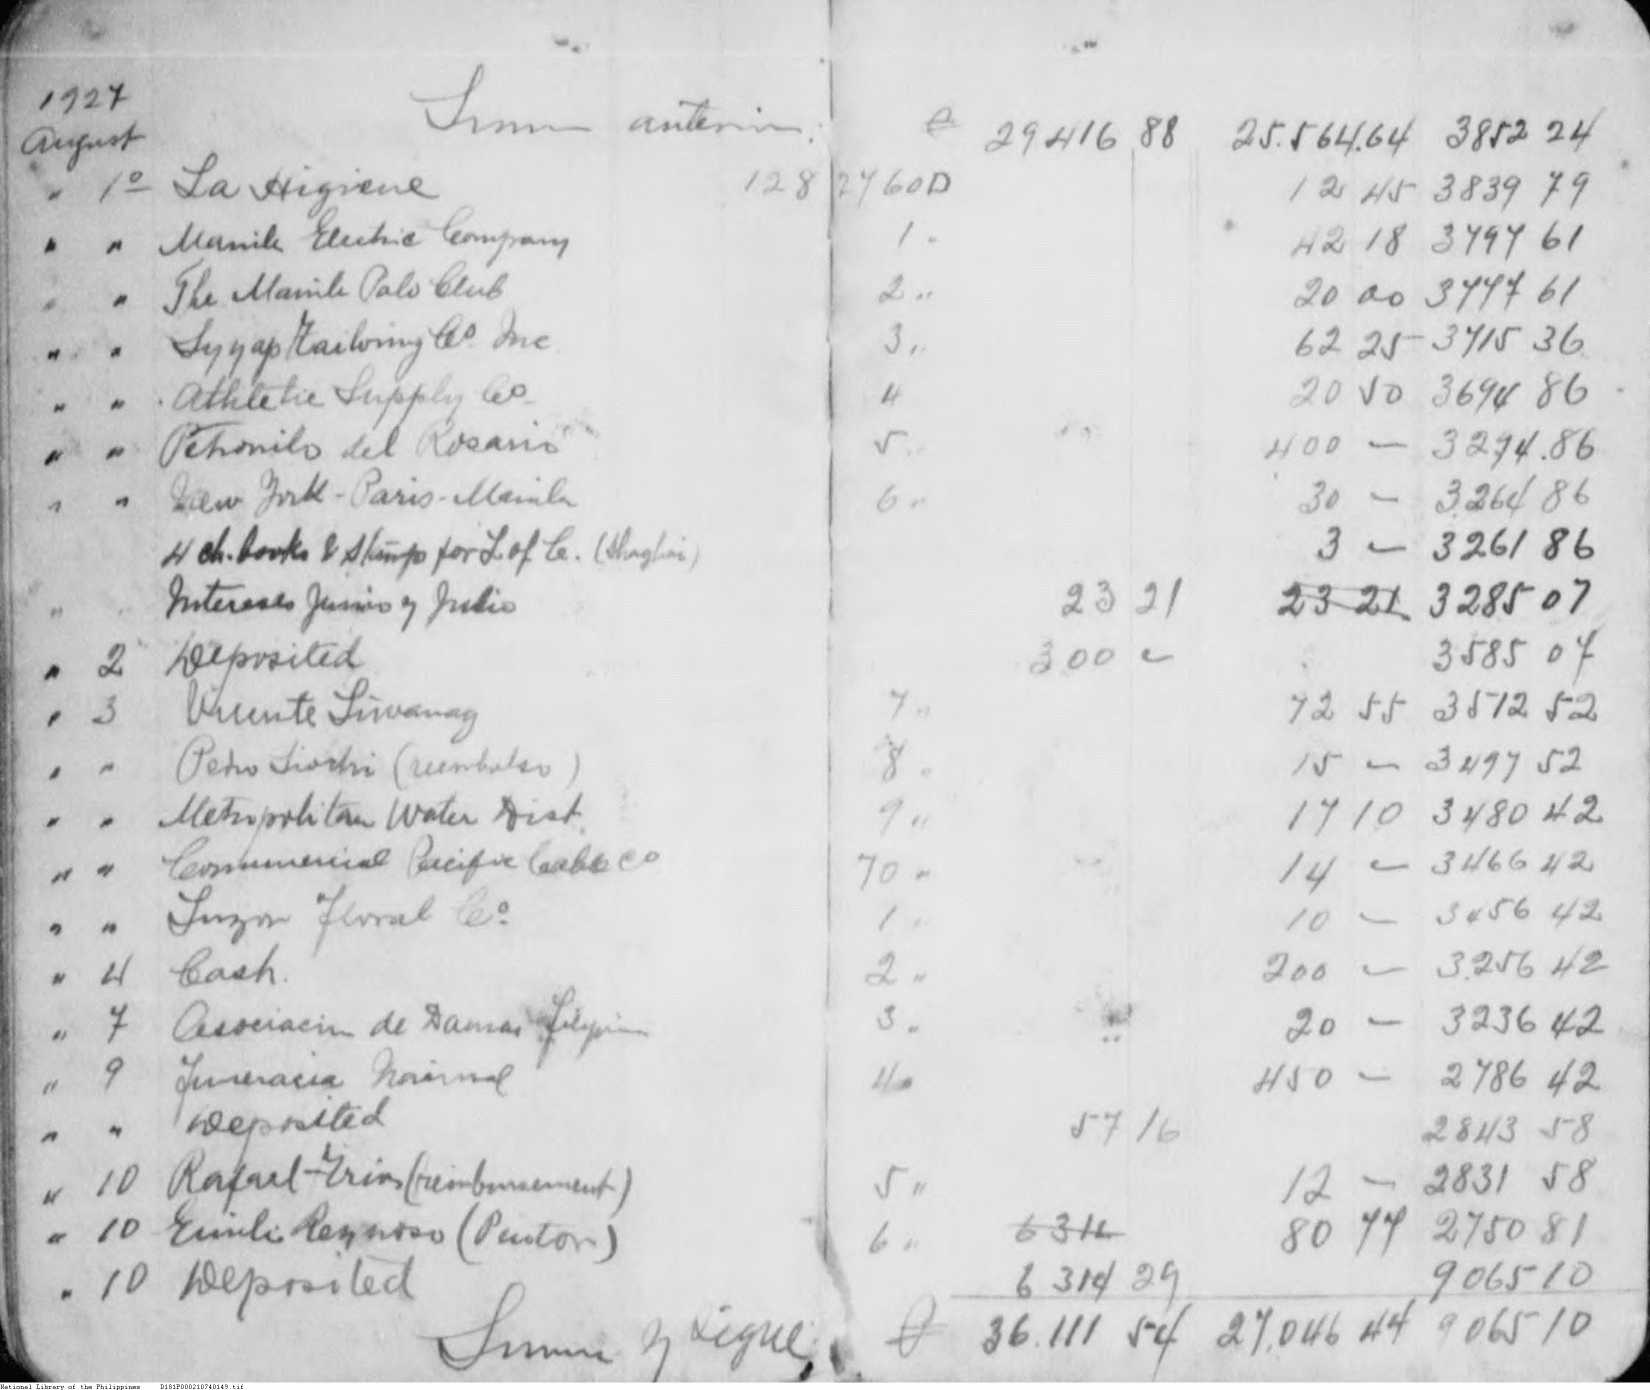 1927
August Suma anterior: ₱ 29416 88 25.564.64 3852 24
" 1º La Higiene 128 2760D 12 45 3839 79
" " Manila Electric Company 1 " 42 18 3797 61
" " The Manila Polo Club 2 " 20 00 3777 61
" " Syyap Tailoring Co. Inc 3 " 62 25 3715 36
" " Athletic Supply Co. 4 20 50 3694 86
" " Petronilo del Rosario 5 " 400 — 3294.86
" " New York-Paris-Manila 6 " 30 — 3264 86
4 ch. books & stamps for L of C. (Shaghai) 3 — 3261 86
" Intereses Junio y Julio 23 21 23 21 3285 07
" 2 Deposited 300 — 3585 07
" 3 Vicente Liwanag 7 " 72 55 3512 52
" " Pedro Siochi (reembolso) 8 " 15 — 3497 52
" " Metropolitan Water Dist. 9 " 17 10 3480 42
" " Commercial Pacific Cable Co 70 " 14 — 3466 42
" " Luzon Floral Co. 1 " 10 — 3456 42
" 4 Cash. 2 " 200 — 3256 42
" 7 Asociacion de Damas Filipinas 3 " 20 — 3236 42
" 9 Funeraria Nacional 4 " 450 — 2786 42
" " Deposited 57 16 2843 58
" 10 Rafael Trias (reimbursement) 5 " 12 — 2831 58
" 10 Emilio Reynoso (Pintor) 6 " 631 80 77 2750 81
" 10 Deposited 6 314 29 9065 10
Suma y Sigue ₱ 36.111 54 27,046 44 9065 10
National Library of the Philippines D181P000210740149.tif